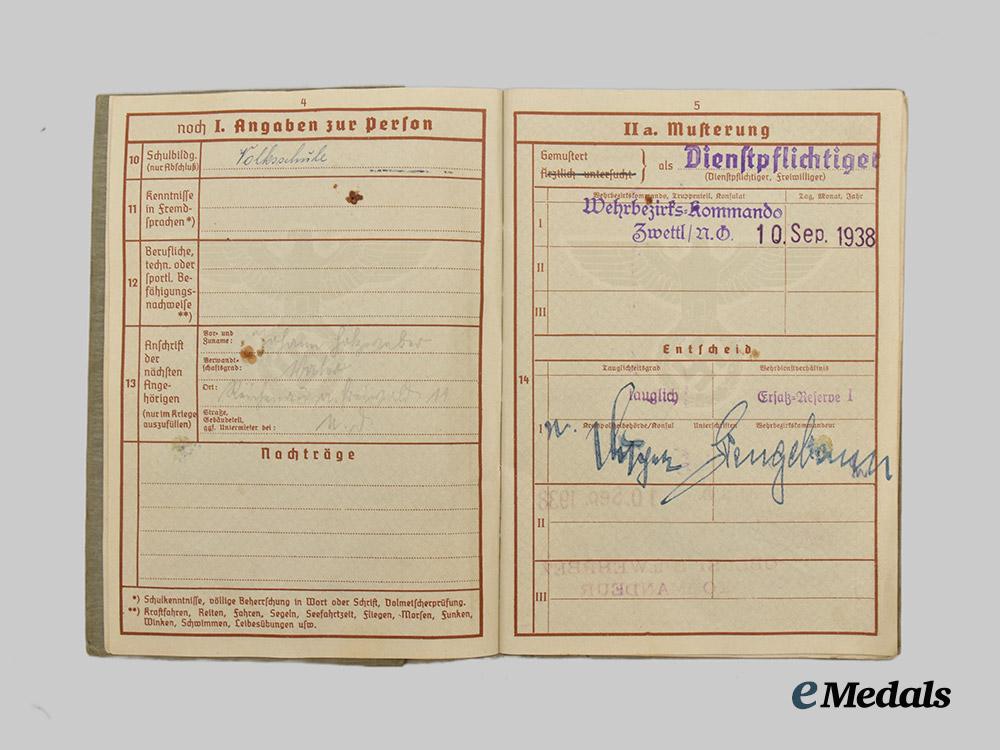 4
noch I. Angaben zur Person
10
Schulbildg.
(nur Abschluß)
Volksschule
11
Kenntnisse
in Fremd-
sprachen*)
12
Berufliche,
techn. oder
sportl. Be-
fähigungs-
nachweise
**)
13
Anschrift
der
nächsten
Ange-
hörigen
(nur im Kriege
auszufüllen)
Vor- und
Zuname:
Johann
Verwandt-
schaftsgrad:
Ort:
Straße,
Gebäudeteil,
ggf. Untermieter bei:
Nachträge
*) Schulkenntnisse, völlige Beherrschung in Wort oder Schrift, Dolmetscherprüfung.
**) Kraftfahren, Reiten, Fahren, Segeln, Seefahrtzeit, Fliegen, Morsen, Funken,
Winken, Schwimmen, Leibesübungen usw.
5
IIa. Musterung
Gemustert
Ärztlich untersucht
als Dienstpflichtiger
(Dienstpflichtiger, Freiwilliger)
Wehrbezirkskommando, Truppenteil, Konsulat
Tag, Monat, Jahr
I
Wehrbezirks-Kommando
Zwettl/N.D. 10. Sep. 1938
II
III
Entscheid
14
Tauglichkeitsgrad
Wehrdienstverhältnis
I
tauglich
Ersatz-Reserve I
Kreispolizeibehörde/Konsul
Unterschriften
Wehrbezirkskommandeur
II
10. Sep. 1938
III
eMedals